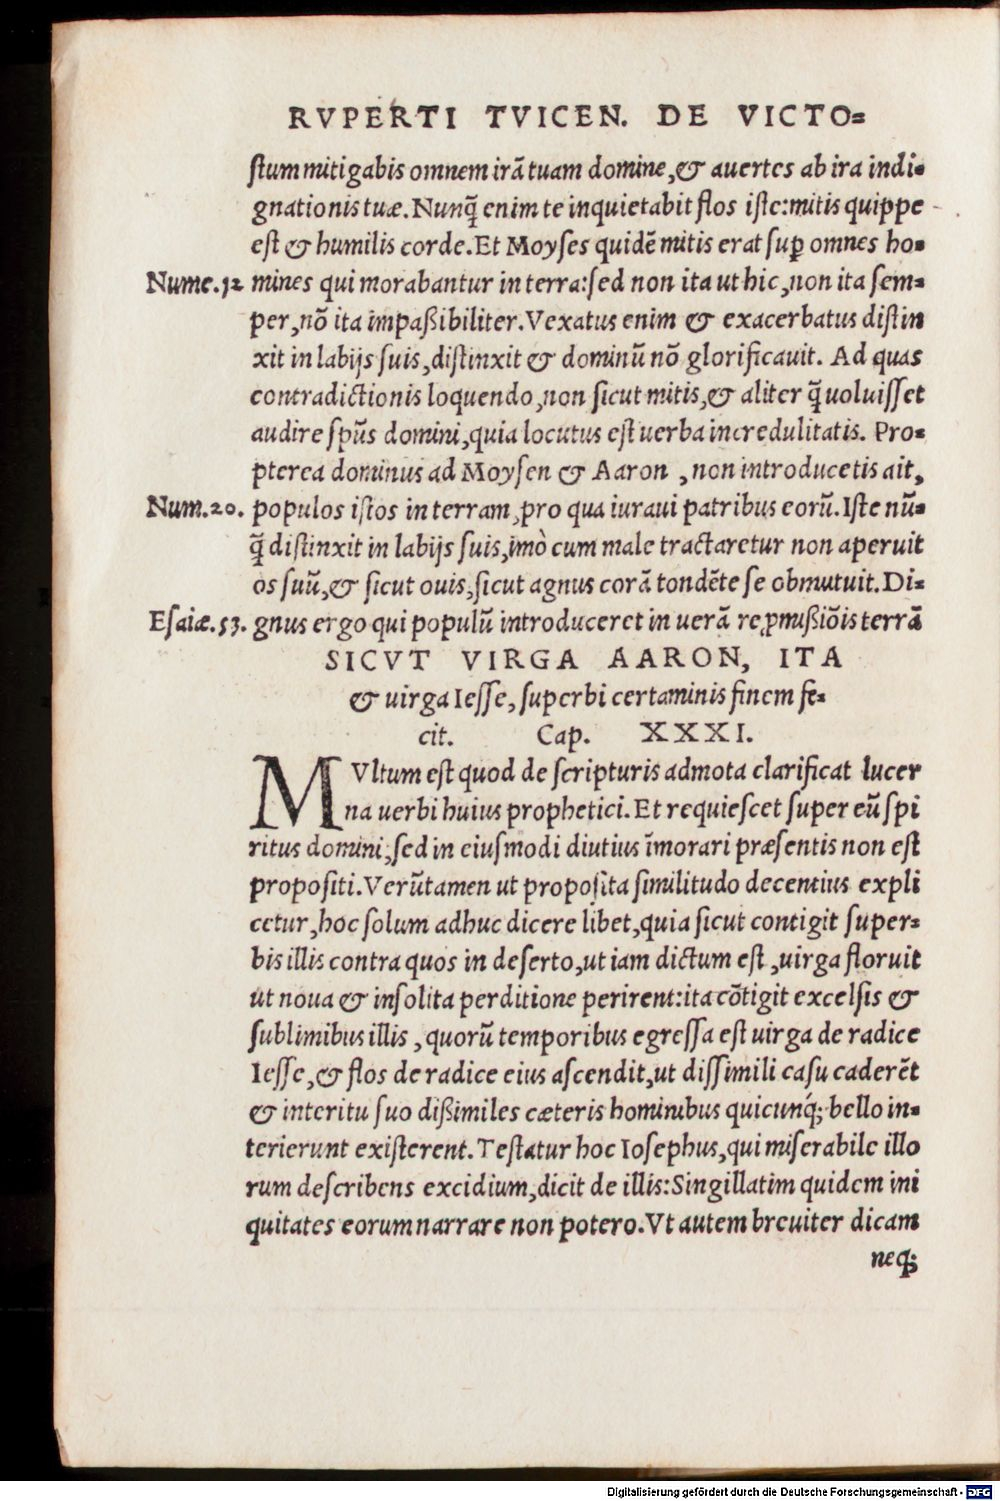 RVPERTI TVICEN. DE VICTO=
ſtum mitigabis omnem irã tuam domine, & auertes ab ira indi=
gnationis tuæ. Nunq̃ enim te inquietabit flos iſte: mitis quippe
eſt & humilis corde. Et Moyſes quidẽ mitis erat ſuꝑ omnes ho=
Nume. 12 mines qui morabantur in terra: ſed non ita ut hic, non ita ſem=
per, nõ ita impaßibiliter. Vexatus enim & exacerbatus diſtin
xit in labijs ſuis, diſtinxit & dominũ nõ glorificauit. Ad quas
contradictionis loquendo, non ſicut mitis, & aliter q̃ uoluiſſet
audire ſpũs domini, quia locutus eſt uerba incredulitatis. Pro=
pterea dominus ad Moyſen & Aaron , non introducetis ait,
Num. 20. populos iſtos in terram, pro qua iuraui patribus eorũ. Iſte nũ=
q̃ diſtinxit in labijs ſuis, imò cum male tractaretur non aperuit
os ſuũ, & ſicut ouis, ſicut agnus corã tondẽte ſe obmutuit. Di=
Eſaiæ. 53. gnus ergo qui populũ introduceret in uerã reꝓmißiõis terrã
SICVT VIRGA AARON, ITA
& uirga Ieſſe, ſuperbi certaminis finem fe=
cit. Cap. XXXI.
MVltum eſt quod de ſcripturis admota clarificat lucer
na uerbi huius prophetici. Et requieſcet ſuper eũ ſpi
ritus domini, ſed in eiuſmodi diutius ĩmorari præſentis non eſt
propoſiti. Verũtamen ut propoſita ſimilitudo decentius expli
cetur, hoc ſolum adhuc dicere libet, quia ſicut contigit ſuper=
bis illis contra quos in deſerto, ut iam dictum eſt , uirga floruit
ut noua & inſolita perditione perirent: ita cõtigit excelſis &
ſublimibus illis , quorũ temporibus egreſſa eſt uirga de radice
Ieſſe, & flos de radice eius aſcendit, ut diſſimili caſu caderẽt
& interitu ſuo dißimiles cæteris hominibus quicunq́; bello in=
terierunt exiſterent. Teſtatur hoc Ioſephus, qui miſerabile illo
rum deſcribens excidium, dicit de illis: Singillatim quidem ini
quitates eorum narrare non potero. Vt autem breuiter dicam
neq;
Digitalisierung gefördert durch die Deutsche Forschungsgemeinschaft - DFG